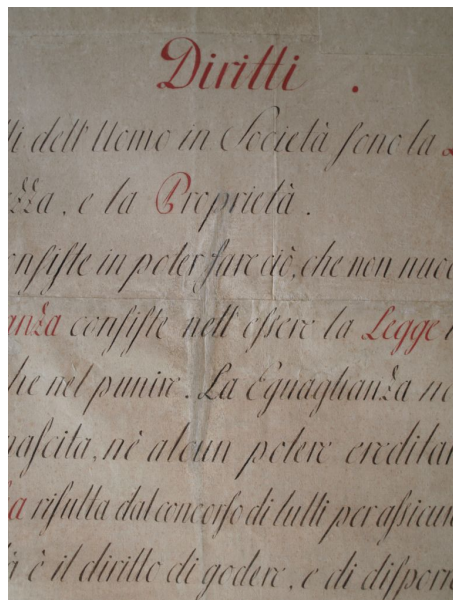 Diritti .
tti dell'Uomo in Società sono la L
ezza, e la Proprietà.
onsiste in poter fare ciò, che non nuoc
anza consiste nell' essere la Legge
he nel punire. La Eguaglianza no
nascita, nè alcun potere ereditar
za risulta dal concorso di tutti per assicur
tà è il diritto di godere, e di disporre